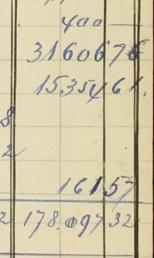 400
3160676
1535461.
8
2
16157
2 178.09732